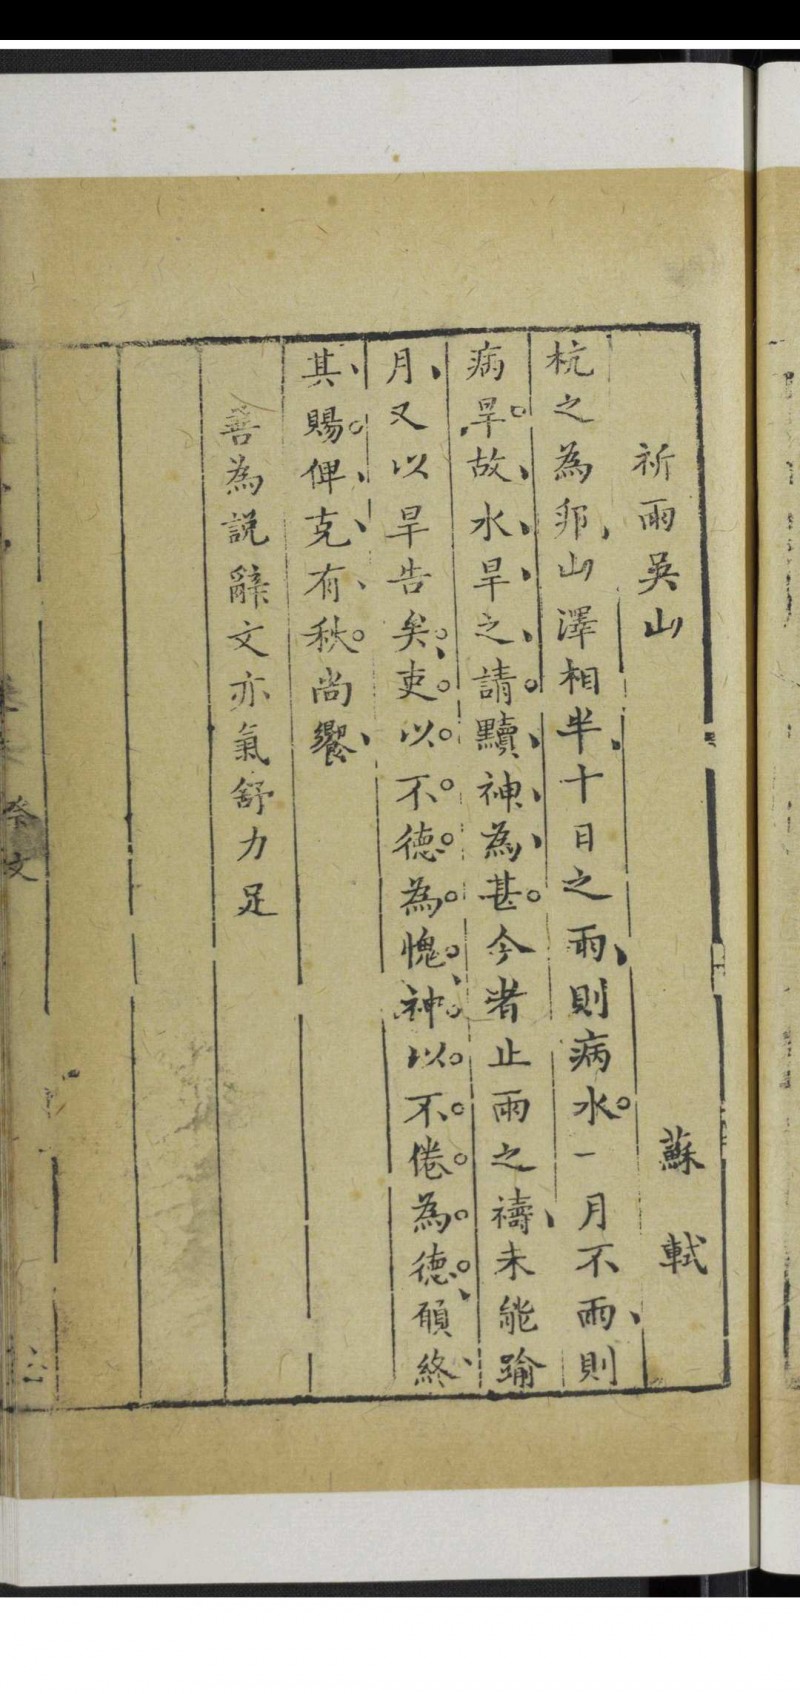 祈雨吳山 蘇軾
杭之為邦山澤相半十日之雨則病水一月不雨則
病旱故水旱之請黷神為甚今者止雨之禱未能踰
月又以旱告矣吏以不德為愧神以不倦為德願終
其賜俾克有秋尚饗
善為說辭文亦氣舒力足
祭文